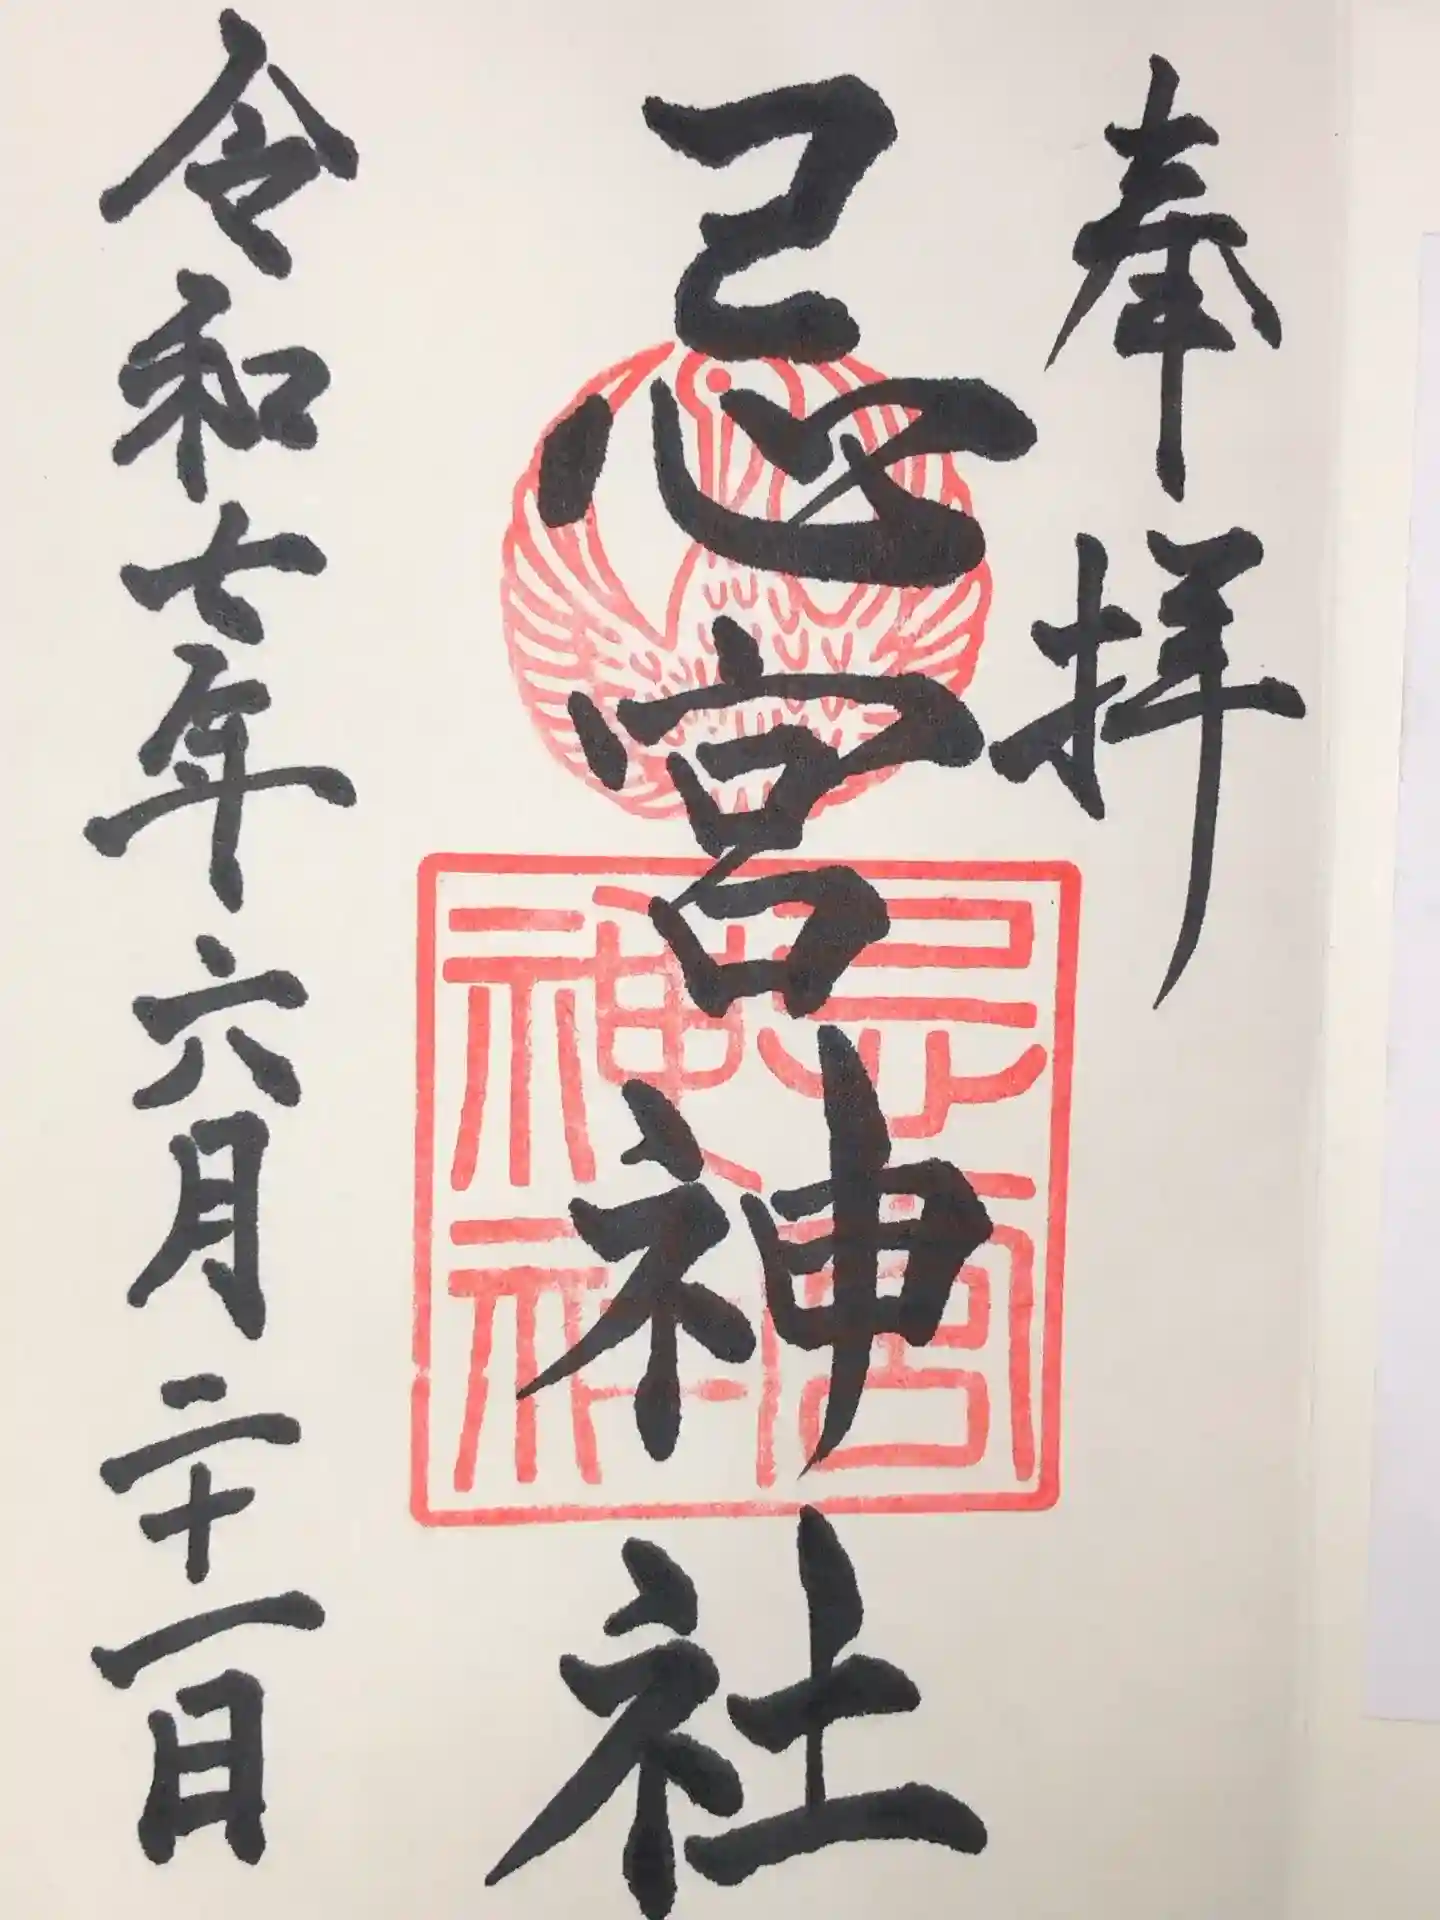 奉拝
忌宮神社
忌宮
神社
令和七年六月二十一日